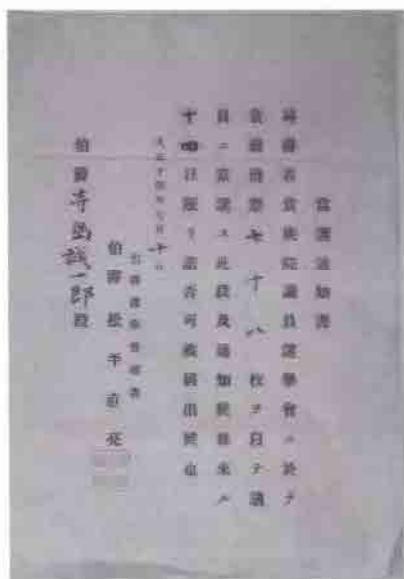 當選通知書
伯爵者貴族院議員選擧會ニ於テ
貴殿得票七十八枚ヲ以テ議
員ニ當選ス此段及通知候條來ル
十四日限リ諾否可被届出候也
大正十四年七月十日
伯爵選擧管理者
伯爵松平直亮
伯爵寺島誠一郎殿